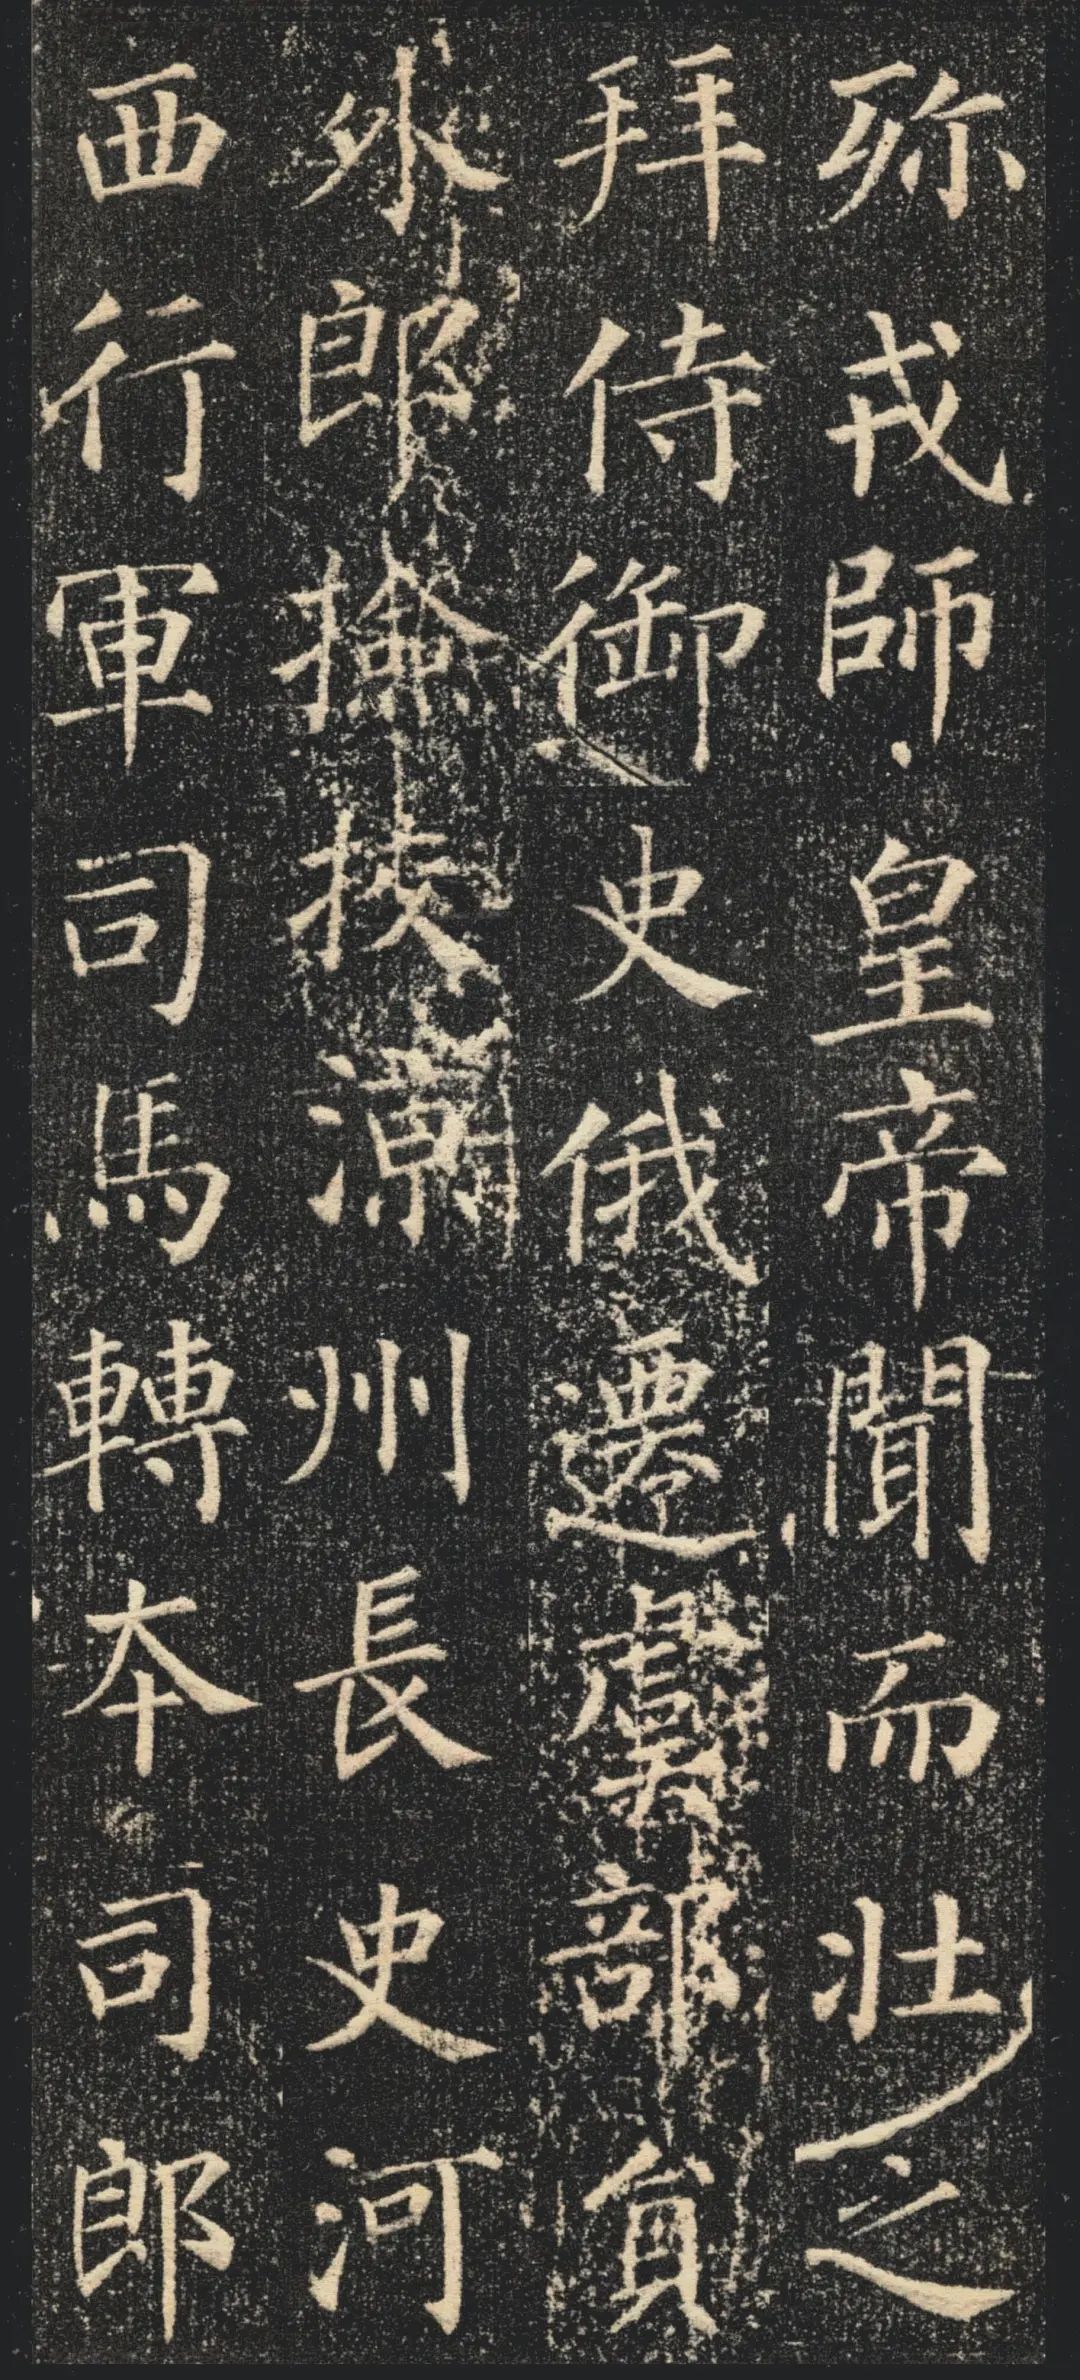 殄戎師皇帝聞而壯之
拜侍御史俄遷虞部員
外郎檢校涼州長史河
西行軍司馬轉本司郎